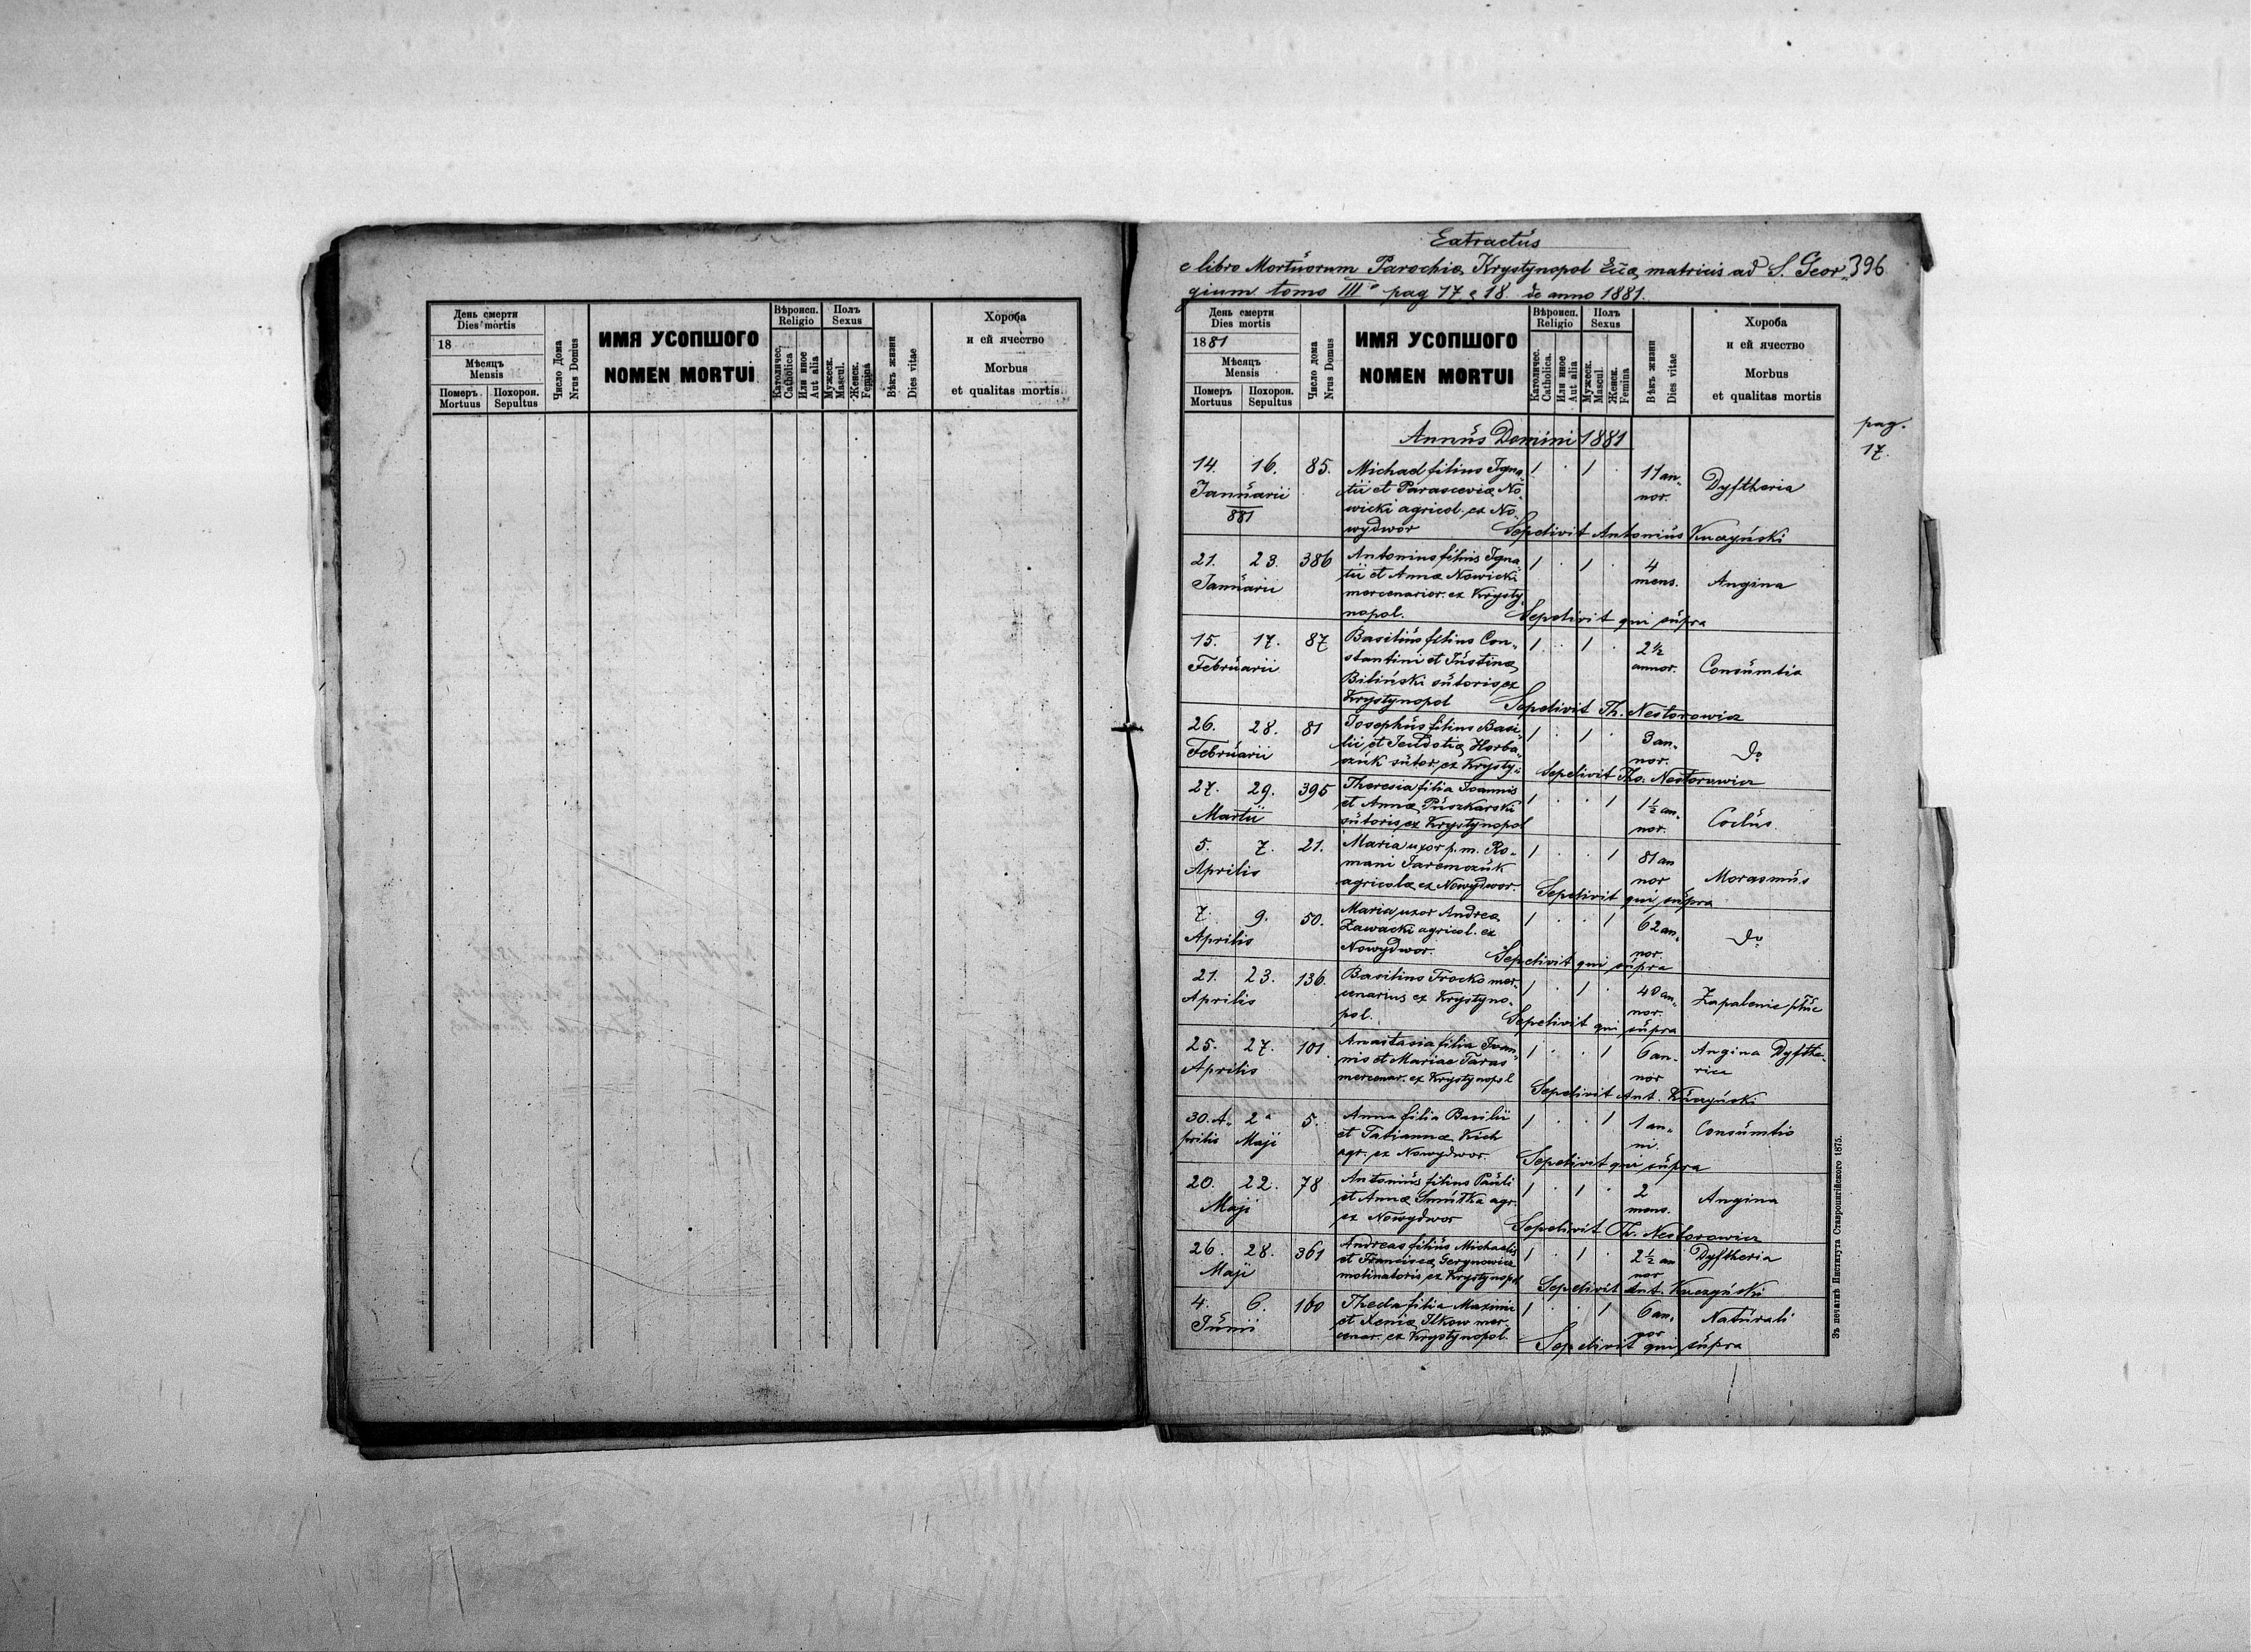 День смерти
Dies mortis
18
Мѣсяцъ
Mensis
Померъ
Mortuus
Похорон.
Sepultus
Число Дома
Nrus Domus
ИМЯ УСОПШОГО
NOMEN MORTUI
Вѣроисп.
Religio
Католичес.
Catholica
Или иное
Aut alia
Полъ
Sexus
Мужеск.
Mascul.
Женск.
Femina
Вѣкъ жизни
Dies vitae
Хороба
и ей ячество
Morbus
et qualitas mortis
Extractus
e libro Mortuorum Parochiæ Krystynopol matricis ad S. Geor„ 396
gium tomo III° pag 17 e 18 de anno 1881.
День смерти
Dies mortis
1881
Мѣсяцъ
Mensis
Померъ
Mortuus
Похорон.
Sepultus
Число дома
Nrus Domus
ИМЯ УСОПШОГО
NOMEN MORTUI
Вѣроисп.
Religio
Католичес.
Catholica.
Или иное
Aut alia
Полъ
Sexus
Мужеск.
Mascul.
Женск.
Femina
Вѣкъ жизни
Dies vitae
Хороба
и ей ячество
Morbus
et qualitas mortis
pag.
17.
Annus Domini 1881
14. 16. 85. Michael filius Igna„ 1 . 1 . 11 an„ Dyftheria
Januarii tii et Parasceviæ No„ nor.
881 wicki agricol. ex No„
wydwor Sepelivit Antonius Kuczyński
21. 23. 386 Antonius filius Igna„ 1 . 1 . 4 Angina
Januarii tii et Annæ Nowicki mens.
mercenarior. ex Krysty„
nopol. Sepelivit qui supra
15. 17. 87 Basilius filius Con„ 1 . 1 . 2½ Consumtio
Februarii stantini et Justinæ annor.
Biliński sutoris ex
Krystynopol Sepelivit Th. Nestorowicz
26. 28. 81 Josephus filius Basi„ 1 . 1 . 3 an„ do
Februarii lii et Jeudotiæ Horba„ nor.
czuk sutor. ex Krysty„ Sepelivit Tho. Nestorowicz
27. 29. 395 Theresia filia Joannis 1 . . 1 1½ an„ Coclus
Martii et Annæ Puszkarski nor.
sutoris ex Krystynopol
5. 7. 21. Maria uxor p. m. Ro„ 1 . . 1 81 an Morasmus
Aprilis mani Jaremczuk nor
agricolæ ex Nowydwor. Sepelivit qui supra
7. 9. 50. Maria uxor Andreæ 1 . . 1 62 an„ do
Aprilis Zawacki agricol. ex nor.
Nowydwor. Sepelivit qui supra
21. 23. 136. Basilius Trocko mer„ 1 . 1 . 40 an„ Zapalenie płuc
Aprilis cenarius ex Krystyno„ nor.
pol. Sepelivit qui supra
25. 27. 101. Anastasia filia Joan„ 1 . . 1 6 an„ Angina Dyfthe„
Aprilis nis et Mariae Taras nor rica
mercenar. ex Krystynopol Sepelivit Ant. Kuczyński
30. A„ 2 5. Anna filia Basilii 1 . . 1 1 an„ Consumtio
prilis Maji et Tatiannæ Kich ni.
agr. ex Nowydwor. Sepelivit qui supra
20. 22. 78 Antonius filius Pauli 1 . 1 . 2 Angina
Maji et Annæ Smutka agr. mens.
ex Nowydwor Sepelivit Th. Nestorowicz
26. 28. 361 Andreas filius Michaelis 1 . 1 . 2½ an Dyftheria
Maji et Franciscæ Gerynowicz nor
molinatoris ex Krystynopol Sepelivit Ant. Kuczyński
4. 6. 160 Thecla filia Maximi 1 . . 1 6 an„ Naturali
Junii et Xeniæ Ilkow mer„ nor
cenar. ex Krystynopol. Sepelivit qui supra
Зъ печатнѣ Института Ставропигійского 1875.